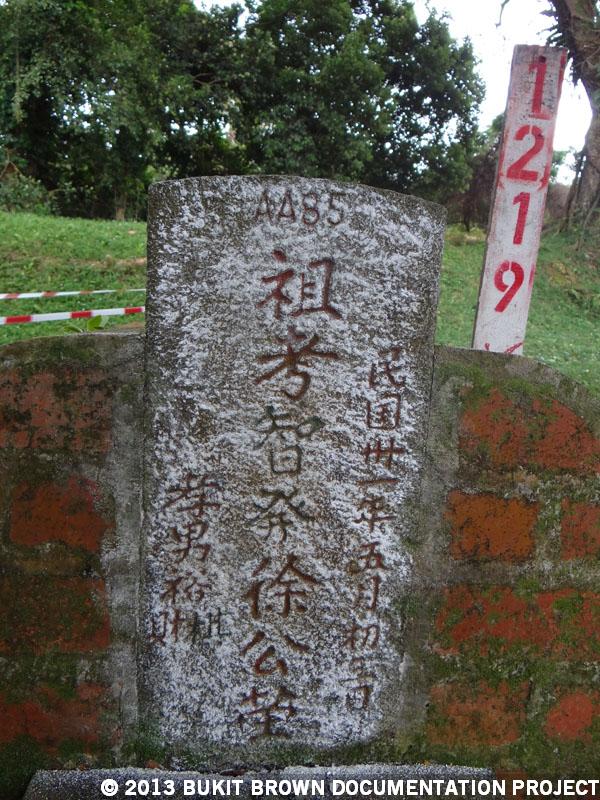 AA85
1219
民国卅一年五月初日
祖考智発徐公茔
孝男裕耕
財
© 2013 BUKIT BROWN DOCUMENTATION PROJECT